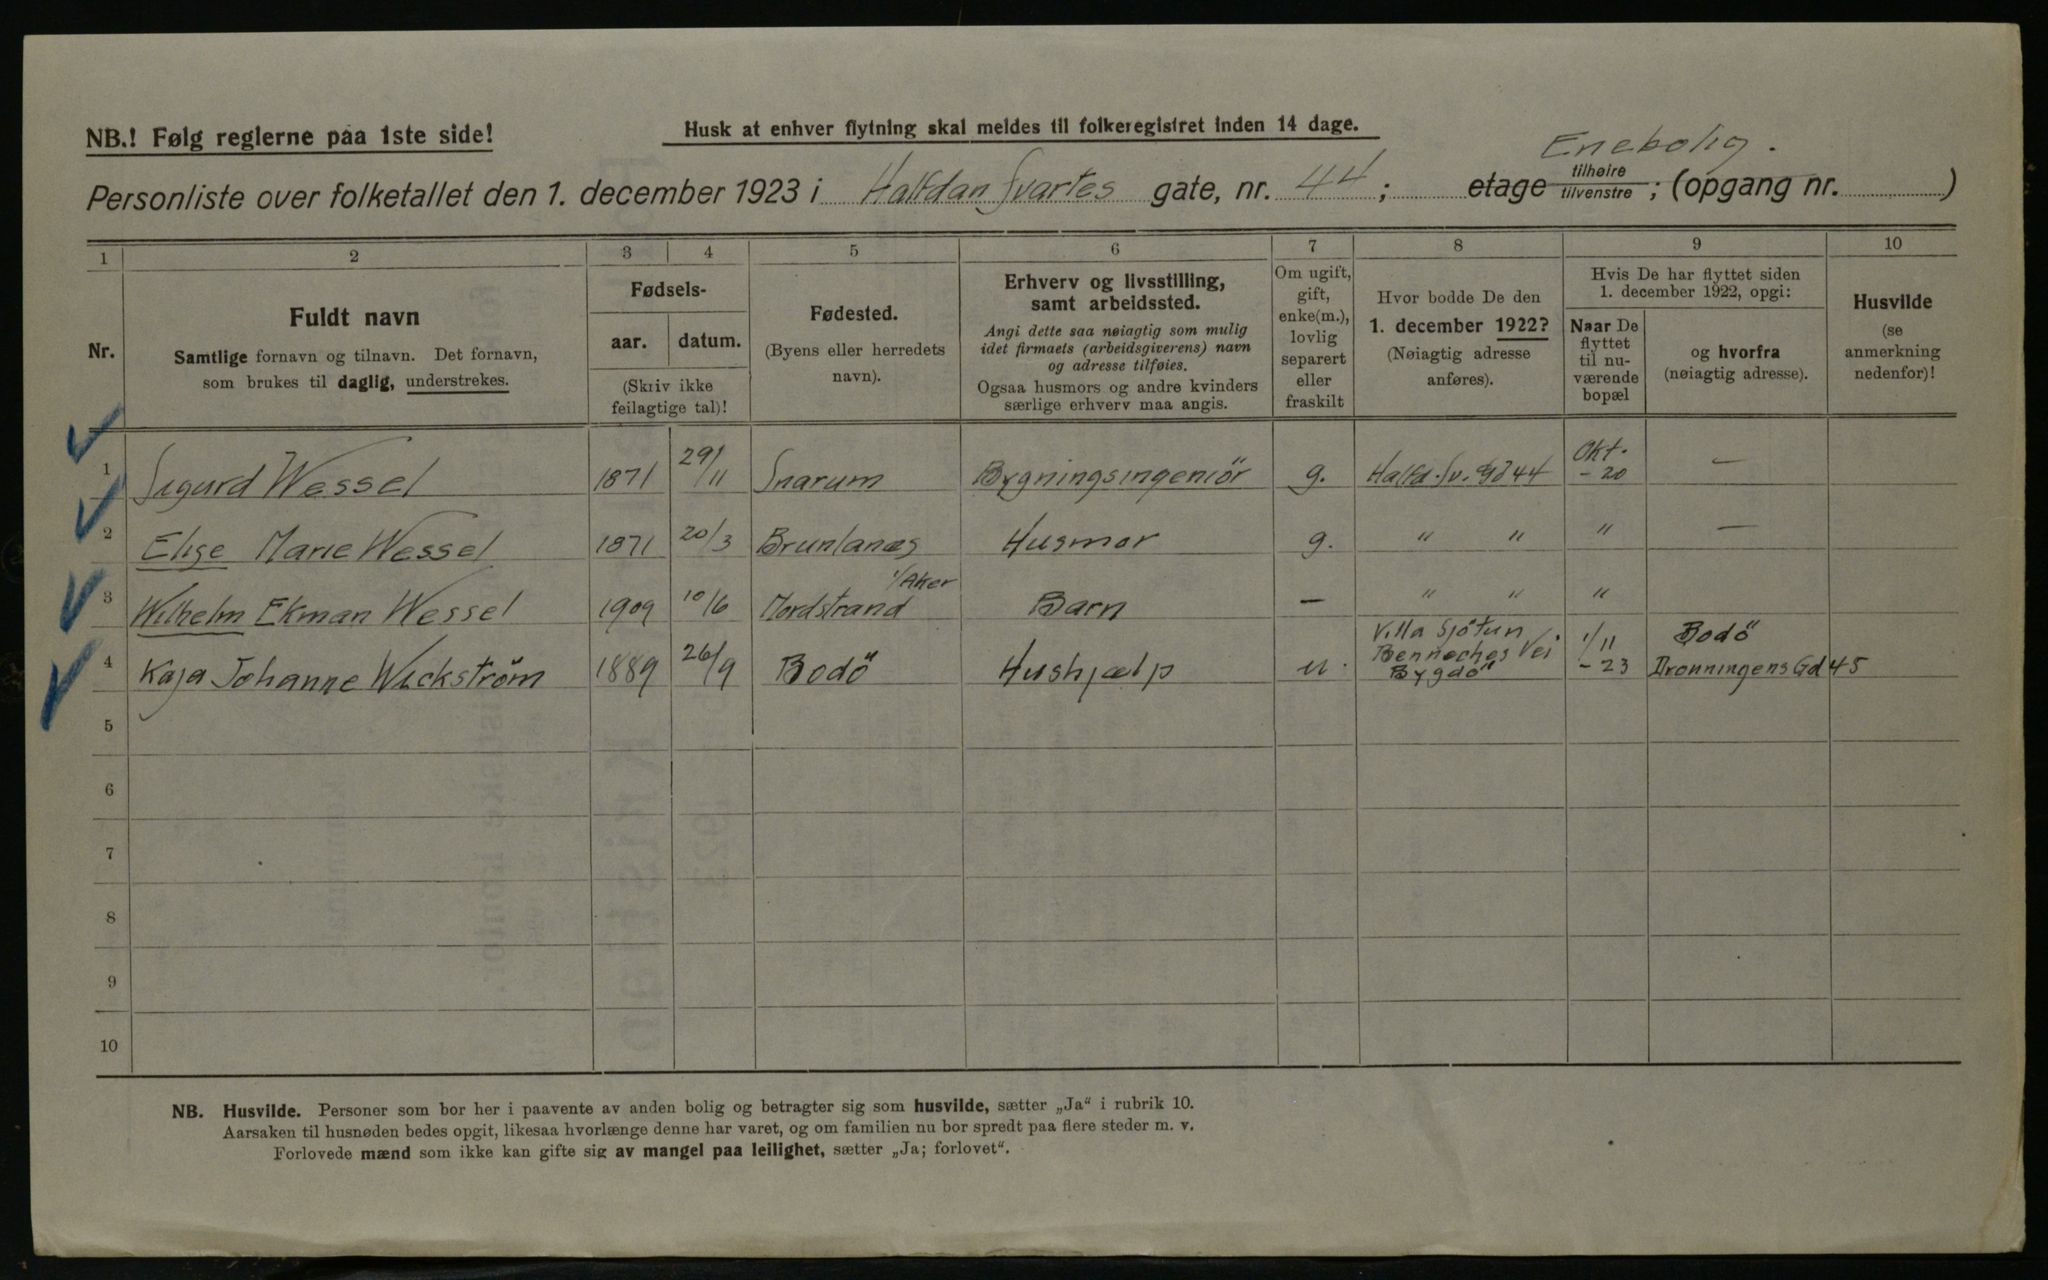 NB.! Følg reglerne paa 1ste side!
Husk at enhver flytning skal meldes til folkeregistret inden 14 dage.
Enebolig.
Personliste over folketallet den 1. december 1923 i Halfdan Svartes gate, nr. 44; etage tilhøire/tilvenstre; (opgang nr. )
1 2 3 4 5 6 7 8 9 10
Nr.
Fuldt navn
Samtlige fornavn og tilnavn. Det fornavn,
som brukes til daglig, understrekes.
Fødsels-
aar. datum.
(Skriv ikke
feilagtige tal)!
Fødested.
(Byens eller herredets
navn).
Erhverv og livsstilling,
samt arbeidssted.
Angi dette saa nøiagtig som mulig
idet firmaets (arbeidsgiverens) navn
og adresse tilføies.
Ogsaa husmors og andre kvinders
særlige erhverv maa angis.
Om ugift,
gift,
enke(m.),
lovlig
separert
eller
fraskilt
Hvor bodde De den
1. december 1922?
(Nøiagtig adresse
anføres).
Hvis De har flyttet siden
1. december 1922, opgi:
Naar De
flyttet
til nu-
værende
bopæl
og hvorfra
(nøiagtig adresse).
Husvilde
(se
anmerkning
nedenfor)!
1 Sigurd Wessel 1871 29/11 Snarum Bygningsingeniör g. Halfd. Sv. gd 44 Okt. -20 —
2 Elise Marie Wessel 1871 20/3 Brunlanæs Husmor g. " " " —
3 Wilhelm Ekman Wessel 1909 10/6 Nordstrand i/Aker Barn — " " "
4 Kaja Johanne Wickström 1889 26/9 Bodö Hushjælp u. Villa Sjötun Benneches Vei Bygdö 1/11 -23 Bodö Dronningens Gd 45
5
6
7
8
9
10
NB. Husvilde. Personer som bor her i paavente av anden bolig og betragter sig som husvilde, sætter „Ja“ i rubrik 10.
Aarsaken til husnøden bedes opgit, likesaa hvorlænge denne har varet, og om familien nu bor spredt paa flere steder m. v.
Forlovede mænd som ikke kan gifte sig av mangel paa leilighet, sætter „Ja; forlovet“.